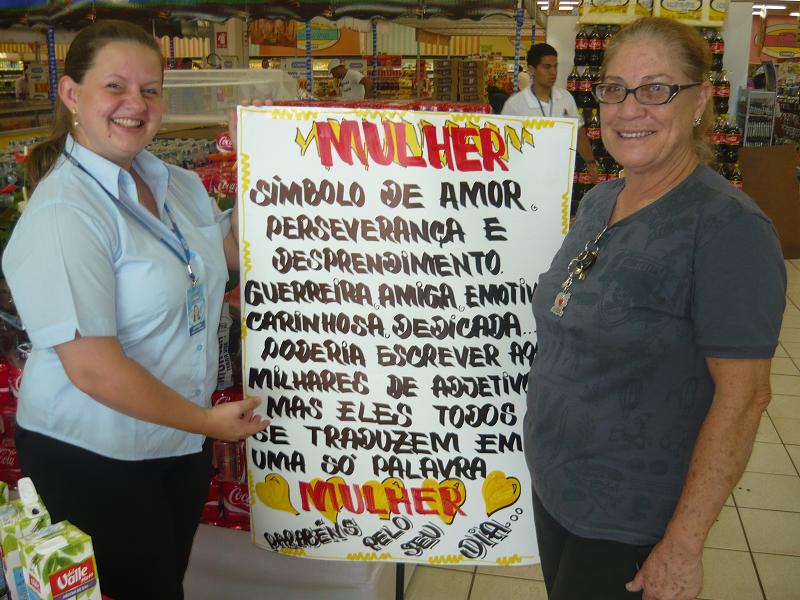 MULHER
SÍMBOLO DE AMOR,
PERSEVERANÇA E
DESPRENDIMENTO.
GUERREIRA, AMIGA, EMOTIV
CARINHOSA, DEDICADA...
PODERIA ESCREVER AQ
MILHARES DE ADJETIV
MAS ELES TODOS
SE TRADUZEM EM
UMA SÓ PALAVRA
MULHER
PARABÉNS PELO SEU DIA...
del Valle
Coca-Cola